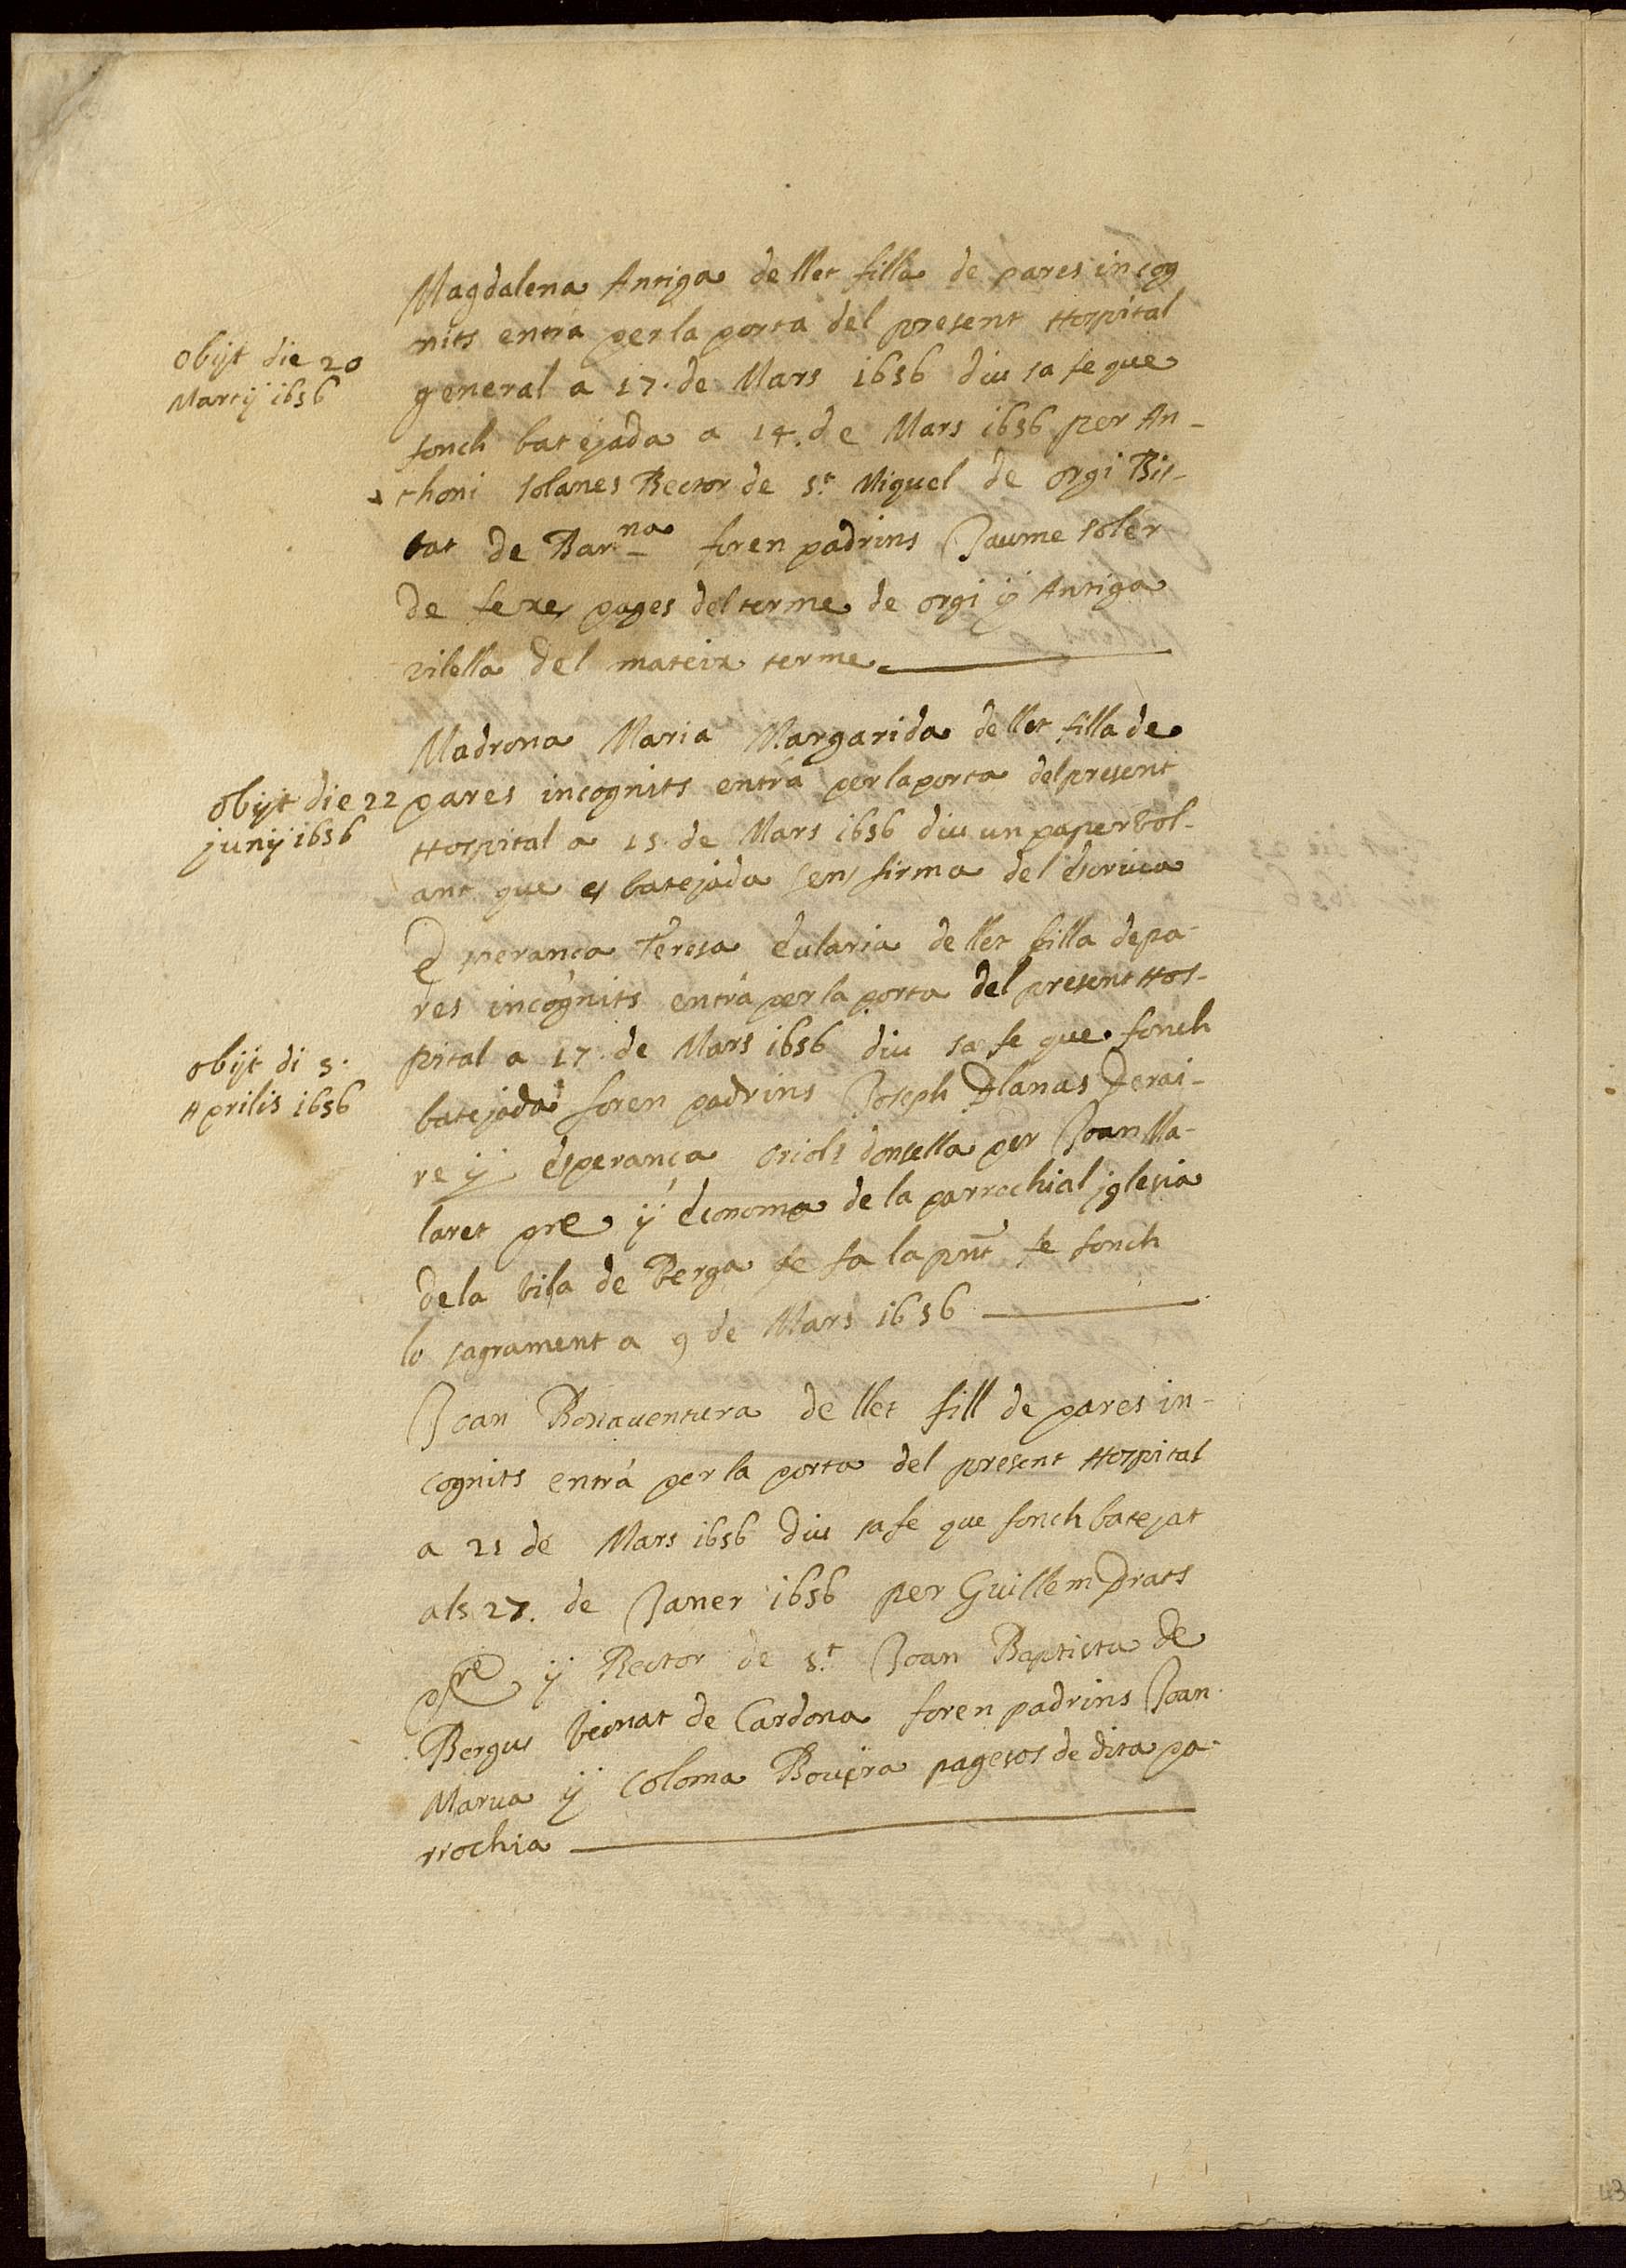 Magdalena Antiga de llet filla de pares incog
nits entrà per la porta del present Hospital
obijt die 20
Martij 1656
general a 17. de Mars 1656 diu sa fe que
fonch batejada a 14. de Mars 1656 per An-
thoni solanes Rector de St. Miguel de orgi Bis-
bat de Barna foren padrins Jaume soler
de pages del terme de orgi y Antiga
vilella del mateix terme
Madrona Maria Margarida de llet filla de
obijt die 22
junij 1656
pares incognits entrà per la porta del present
Hospital a 15 de Mars 1656 diu un paper vol-
ant que es batejada sens firma del escriva
Esperança Teresa Eularia de llet filla de pa-
res incognits entrà per la porta del present Hos-
obijt di 5.
Aprilis 1656
pital a 17. de Mars 1656 diu sa fe que fonch
batejada foren padrins Joseph Planas Perai-
re y esperança oriols donsella per Joan Ma-
laret pre y economo de la parrochial iglesia
de la vila de Berga se fa la pnt fe fonch
lo sagrament a 9 de Mars 1656
Joan Bonaventura de llet fill de pares in-
cognits entrà per la porta del present Hospital
a 21 de Mars 1656 diu sa fe que fonch batejat
als 27. de Janer 1656 per Guillem Prats
pre y Rector de St. Joan Baptista de
Bergus de Cardona foren padrins Joan
Marua y Coloma pagesos de dita pa-
rrochia
43